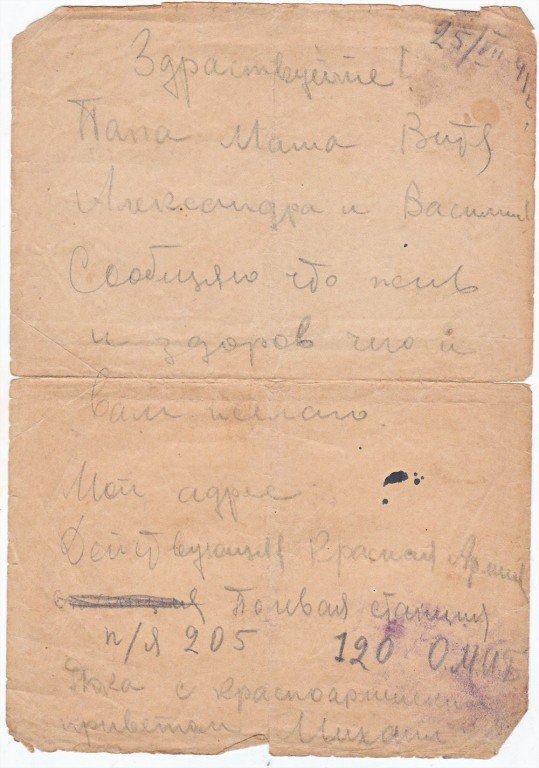 25/VII 41 г.
Здраствуйте!
Папа Мама Витя
Александра и Василий
Сообщяю что жив
и здоров чего и
Вам желаю.
Мой адрес
Действующая Красная Армия
Полевая станция
п/я 205 120 ОМИБ
Пока с красноармейским
приветом Михаил